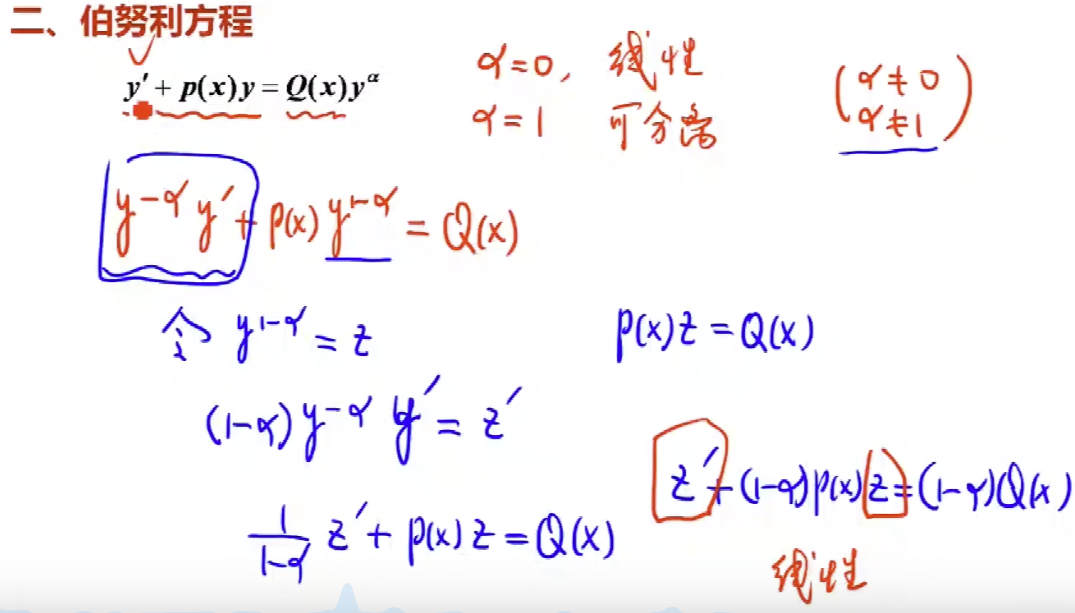 二、伯努利方程
y′ + p(x)y = Q(x)y^α
α=0, 线性
α=1 可分离
(α≠0
α≠1)
y^-α y′ + p(x) y^1-α = Q(x)
令 y^1-α = z
p(x)z = Q(x)
(1-α) y^-α y′ = z′
z′+(1-α)p(x)z=(1-α)Q(x)
1/1-α z′ + p(x)z = Q(x)
线性